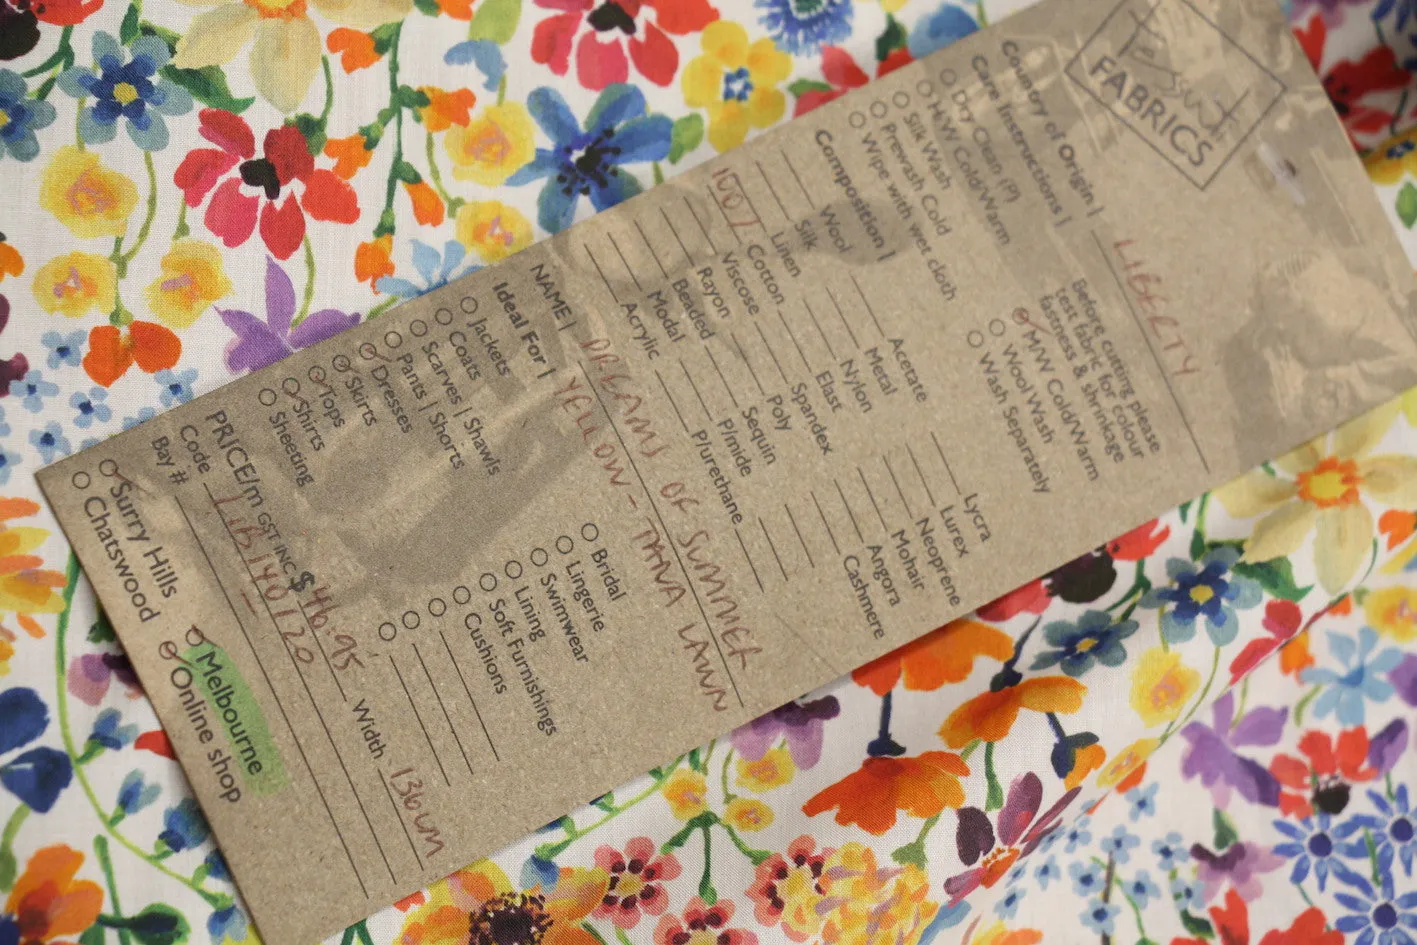 Tessuti
FABRICS
Country of Origin | LIBERTY
Care Instructions |
Before cutting please
test fabric for colour
fastness & shrinkage
Dry Clean (P)
H/W Cold/Warm
Silk Wash
Prewash Cold
Wipe with wet cloth
M/W Cold/Warm
Wool Wash
Wash Separately
Composition |
Wool
Silk
Linen
100% Cotton
Viscose
Rayon
Beaded
Modal
Acrylic
Acetate
Metal
Nylon
Elast
Spandex
Poly
Sequin
P/mide
P/urethane
Lycra
Lurex
Neoprene
Mohair
Angora
Cashmere
NAME | DREAMS OF SUMMER
YELLOW - TANA LAWN
Ideal For |
Jackets
Coats
Scarves | Shawls
Pants | Shorts
Dresses
Skirts
Tops
Shirts
Sheeting
Bridal
Lingerie
Swimwear
Lining
Soft Furnishings
Cushions
PRICE/m GST INC $ 46.95 Width 136cm
Code LIB140120
Bay #
Surry Hills
Chatswood
Melbourne
Online shop